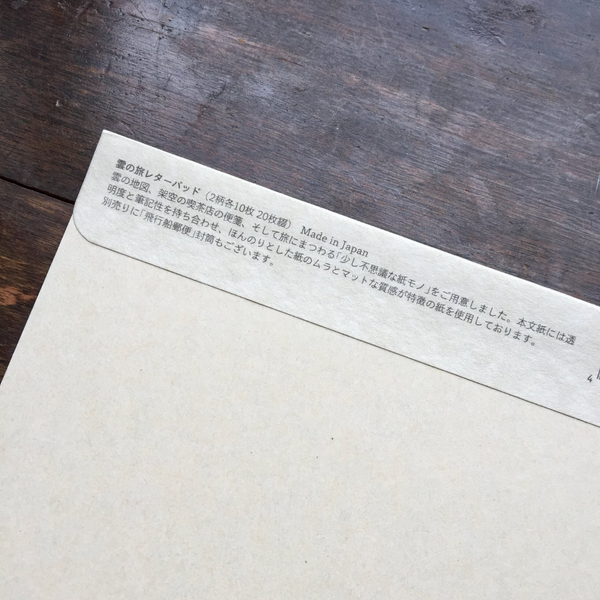 雲の旅レターパッド（2柄各10枚 20枚綴） Made in Japan
雲の地図、架空の喫茶店の便箋、そして旅にまつわる「少し不思議な紙モノ」をご用意しました。本文紙には透
明度と筆記性を持ち合わせ、ほんのりとした紙のムラとマットな質感が特徴の紙を使用しております。
別売りに「飛行船郵便」封筒もございます。
4